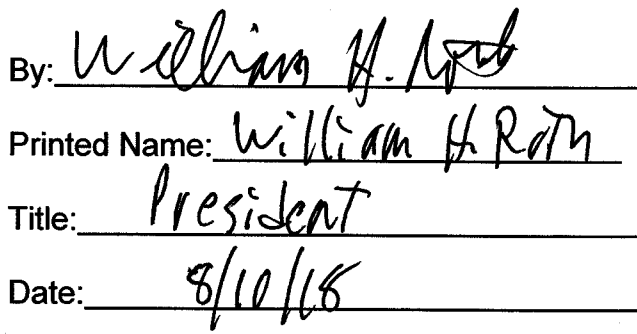 By: William H. Roth
Printed Name: William H. Roth
Title: President
Date: 8/10/18